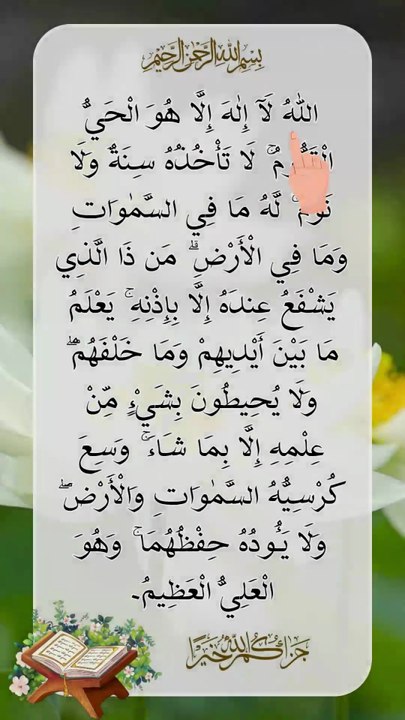 بسم الله الرحمن الرحيم
اللّٰهُ لَآ إِلٰهَ إِلَّا هُوَ الْحَيُّ
لَا تَأْخُذُهُ سِنَةٌ وَلَا
نَوْمٌ ۚ لَّهُ مَا فِي السَّمٰوَاتِ
وَمَا فِي الْأَرْضِ ۗ مَن ذَا الَّذِي
يَشْفَعُ عِندَهُ إِلَّا بِإِذْنِهِ ۚ يَعْلَمُ
مَا بَيْنَ أَيْدِيهِمْ وَمَا خَلْفَهُمْ ۖ
وَلَا يُحِيطُونَ بِشَيْءٍ مِّنْ
عِلْمِهِ إِلَّا بِمَا شَاءَ ۚ وَسِعَ
كُرْسِيُّهُ السَّمٰوَاتِ وَالْأَرْضَ ۖ
وَلَا يَـُٔودُهُ حِفْظُهُمَا ۚ وَهُوَ
الْعَلِيُّ الْعَظِيمُ۔
جزاكم الله خيرا